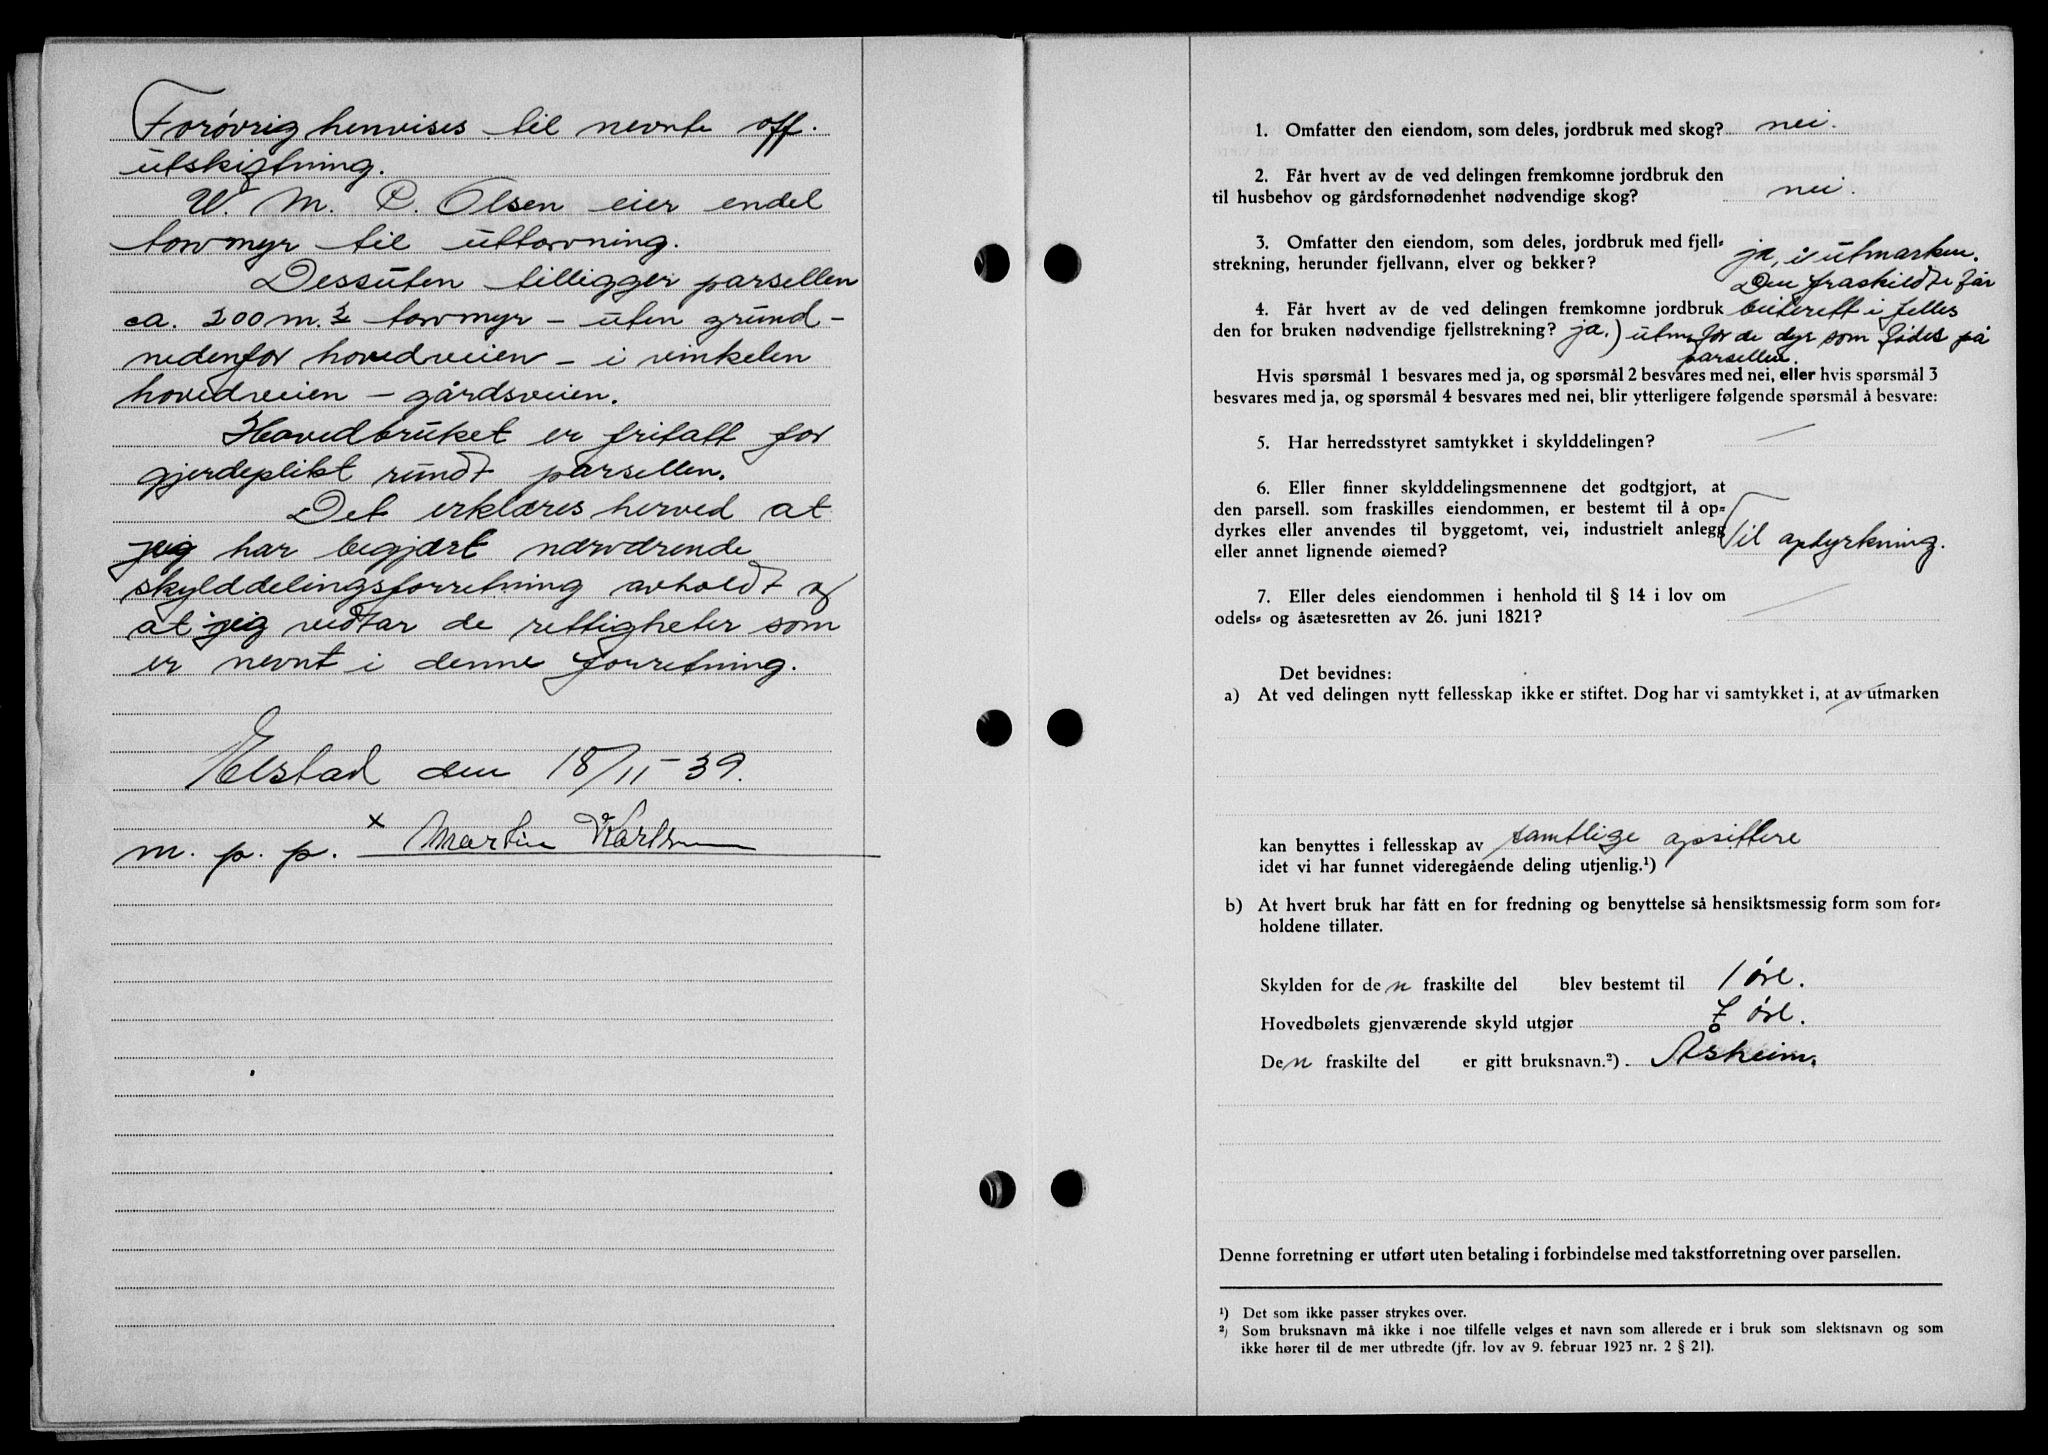 Forøvrig henvises til nevnte off.
utskiftning.
W. M. P. Olsen eier endel
torvmyr til uttorvning.
Dessuten tilligger parsellen
ca. 200 m.² torvmyr – uten grund –
nedenfor hovedveien – i vinkelen
hovedveien – gårdsveien.
Hovedbruket er fritatt for
gjerdeplikt rundt parsellen.
Det erklæres herved at
jeg har begjært nærværende
skylddelingsforretning avholdt og
at jeg vedtar de rettigheter som
er nevnt i denne forretning.
Elstad den 18/11-39.
m. p. p. x Martin Karlsen
1. Omfatter den eiendom, som deles, jordbruk med skog? nei.
2. Får hvert av de ved delingen fremkomne jordbruk den
til husbehov og gårdsfornødenhet nødvendige skog? nei.
3. Omfatter den eiendom, som deles, jordbruk med fjell-
strekning, herunder fjellvann, elver og bekker? ja, i utmarken.
Den fraskildte får
4. Får hvert av de ved delingen fremkomne jordbruk beiterett i felles
den for bruken nødvendige fjellstrekning? ja.) utm. for de dyr som födes på
parsellen.
Hvis spørsmål 1 besvares med ja, og spørsmål 2 besvares med nei, eller hvis spørsmål 3
besvares med ja, og spørsmål 4 besvares med nei, blir ytterligere følgende spørsmål å besvare:
5. Har herredsstyret samtykket i skylddelingen? —
6. Eller finner skylddelingsmennene det godtgjort, at
den parsell. som fraskilles eiendommen, er bestemt til å op-
dyrkes eller anvendes til byggetomt, vei, industrielt anlegg
eller annet lignende øiemed? Til opdyrkning.
7. Eller deles eiendommen i henhold til § 14 i lov om
odels- og åsætesretten av 26. juni 1821? —
Det bevidnes:
a) At ved delingen nytt fellesskap ikke er stiftet. Dog har vi samtykket i, at av utmarken
kan benyttes i fellesskap av samtlige opsittere
idet vi har funnet videregående deling utjenlig.¹)
b) At hvert bruk har fått en for fredning og benyttelse så hensiktsmessig form som for-
holdene tillater.
Skylden for den fraskilte del blev bestemt til 1 øre.
Hovedbølets gjenværende skyld utgjør 7 øre.
Den fraskilte del er gitt bruksnavn.²) Åsheim.
Denne forretning er utført uten betaling i forbindelse med takstforretning over parsellen.
¹) Det som ikke passer strykes over.
²) Som bruksnavn må ikke i noe tilfelle velges et navn som allerede er i bruk som slektsnavn og som
ikke hører til de mer utbredte (jfr. lov av 9. februar 1923 nr. 2 § 21).